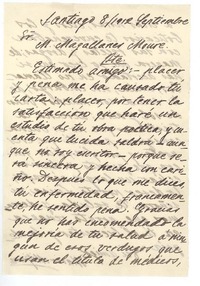 Santiago 8/1912 Septiembre
Sr.
M. Magallanes Moure
Pte
Estimado amigo: - placer
y pena me ha causado tu
carta: placer, por tener la
satisfaccion que haré un
estudio de tu obra poética, y
que lucida saldrá - aun
que no soy escritor - porque se
rá sincero, y hecho con cari
ño. Despues lo que me dices
tu enfermedad, francamen
te, he sentido pena. Gracias
que no has encomendado la
mejoría de tu salud a nin
gun de esos verdugos que
usan el título de médicos,